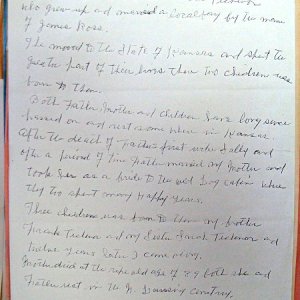 who grew up and married a local boy by the name
of James Ross.
The moved to the State of Kansas and spent the
greater part of their lives there two children was
born to them.
Both Father Mother and Children have long since
passed on and rest some where in Kansas.
After the death of Fathers first wife Sally and
after a period of time Father married my Mother and
took her as a bride to the old log cabin where
they too spent many happy years.
Three children was born to them my brother
Frank and my sister Sarah and
twelve years later I came along.
Mother died at the ripe old age of 89 both she and
Father rest in the cemetery.